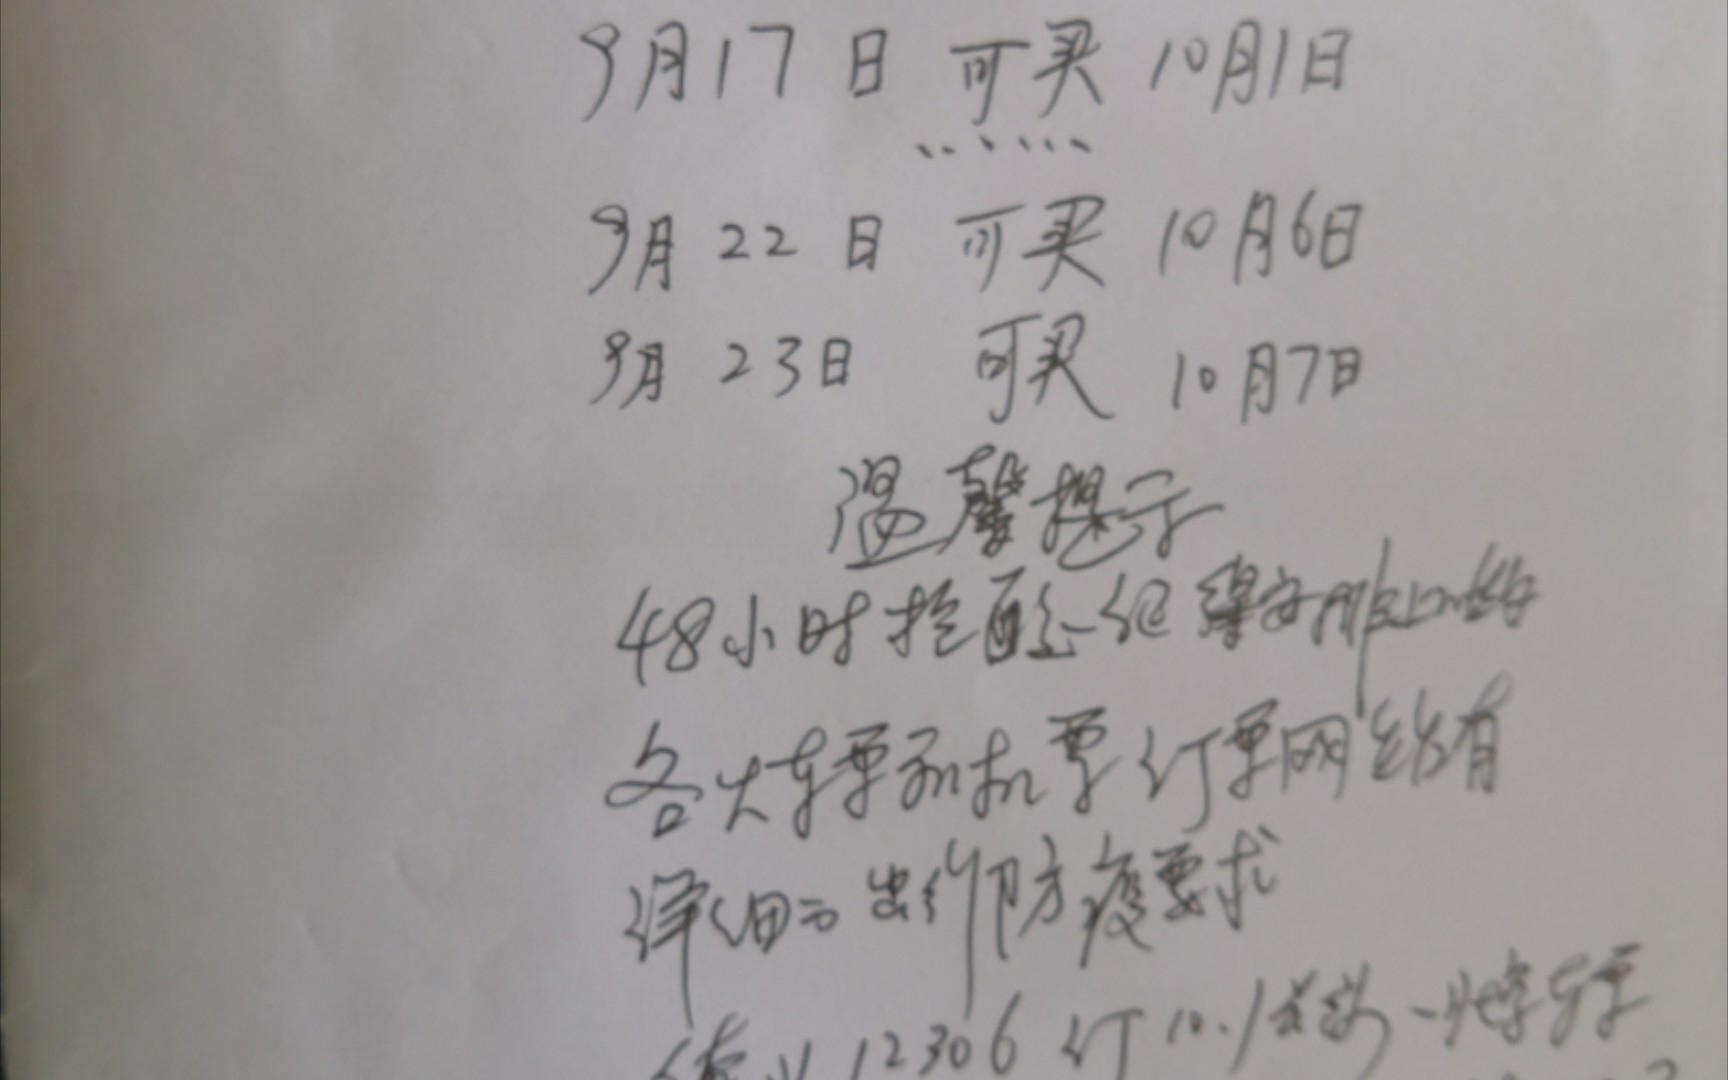 9月17日 可买 10月1日
9月22日 可买 10月6日
9月23日 可买 10月7日
温馨提示
48小时
各大车票和机票订票网络有
详细的出行防疫要求
12306订10.1 一张车票